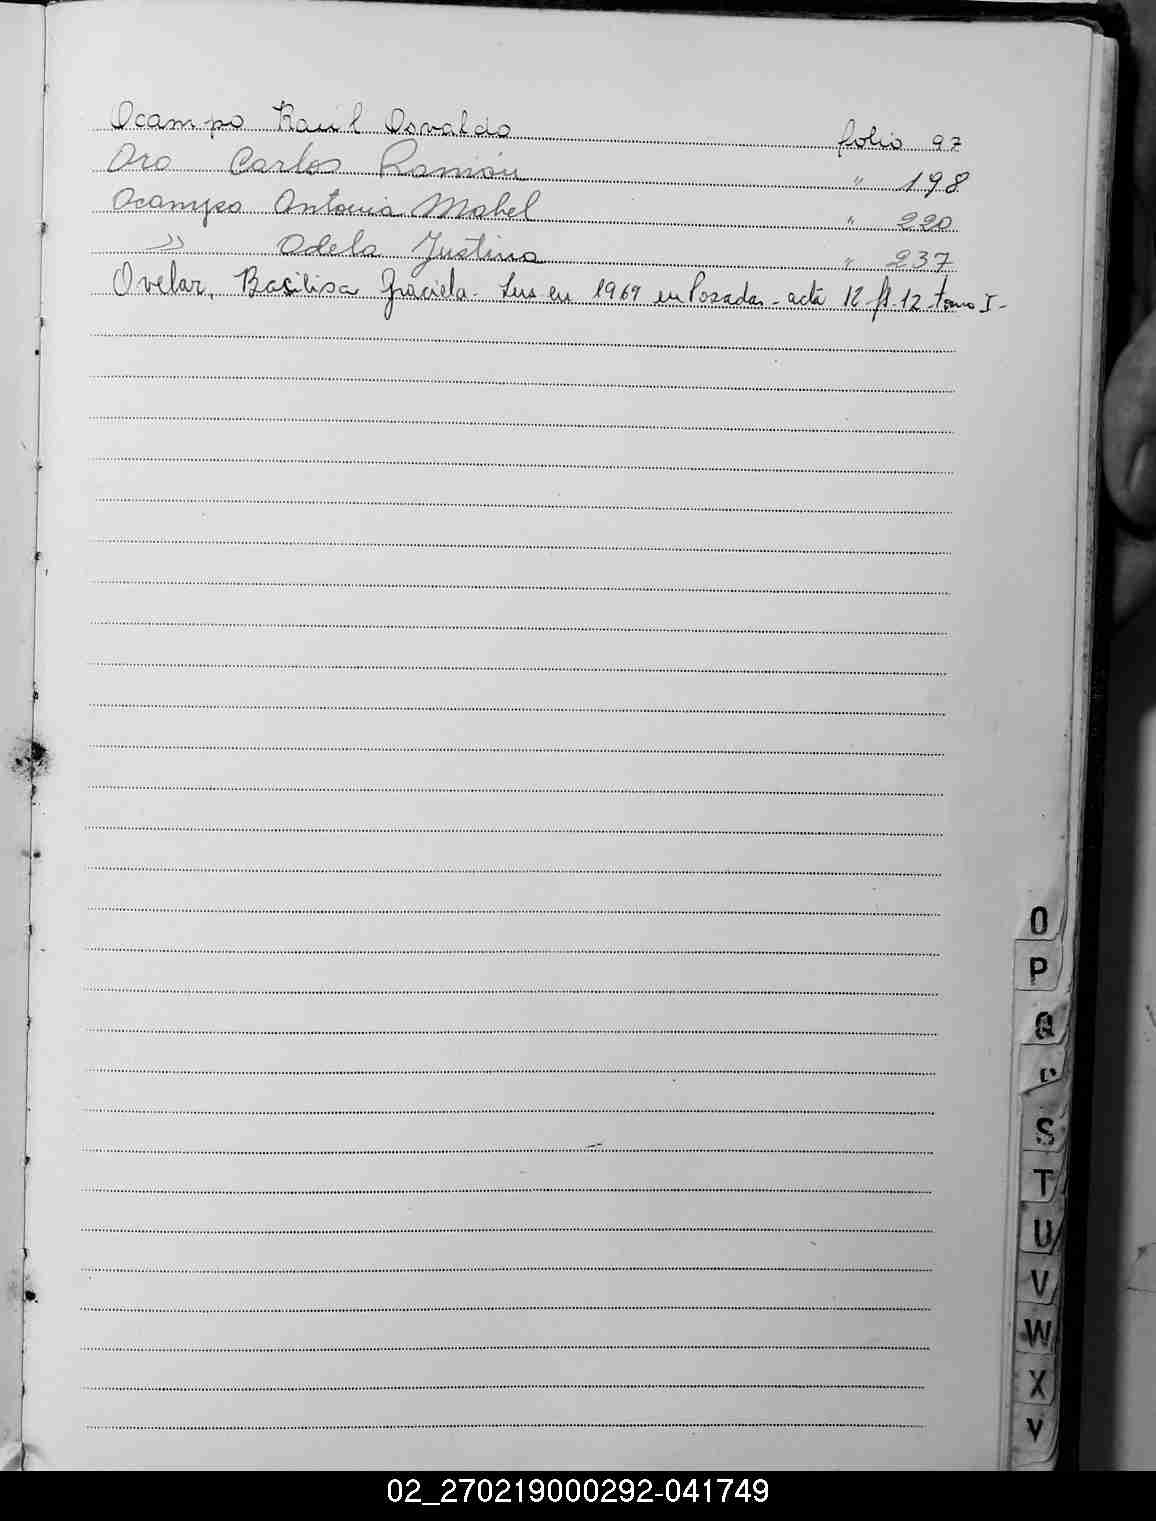 Ocampo Raúl Osvaldo folio 97
Oro Carlos Ramón " 198
Ocampo Antonia Mabel " 220
" Adela Justina " 237
Ovelar, Basilisa Graciela - en 1969 en Posadas - acta 12 - fº 12 - tomo I -
O
P
Q
S
T
U
V
W
X
Y
02_270219000292-041749